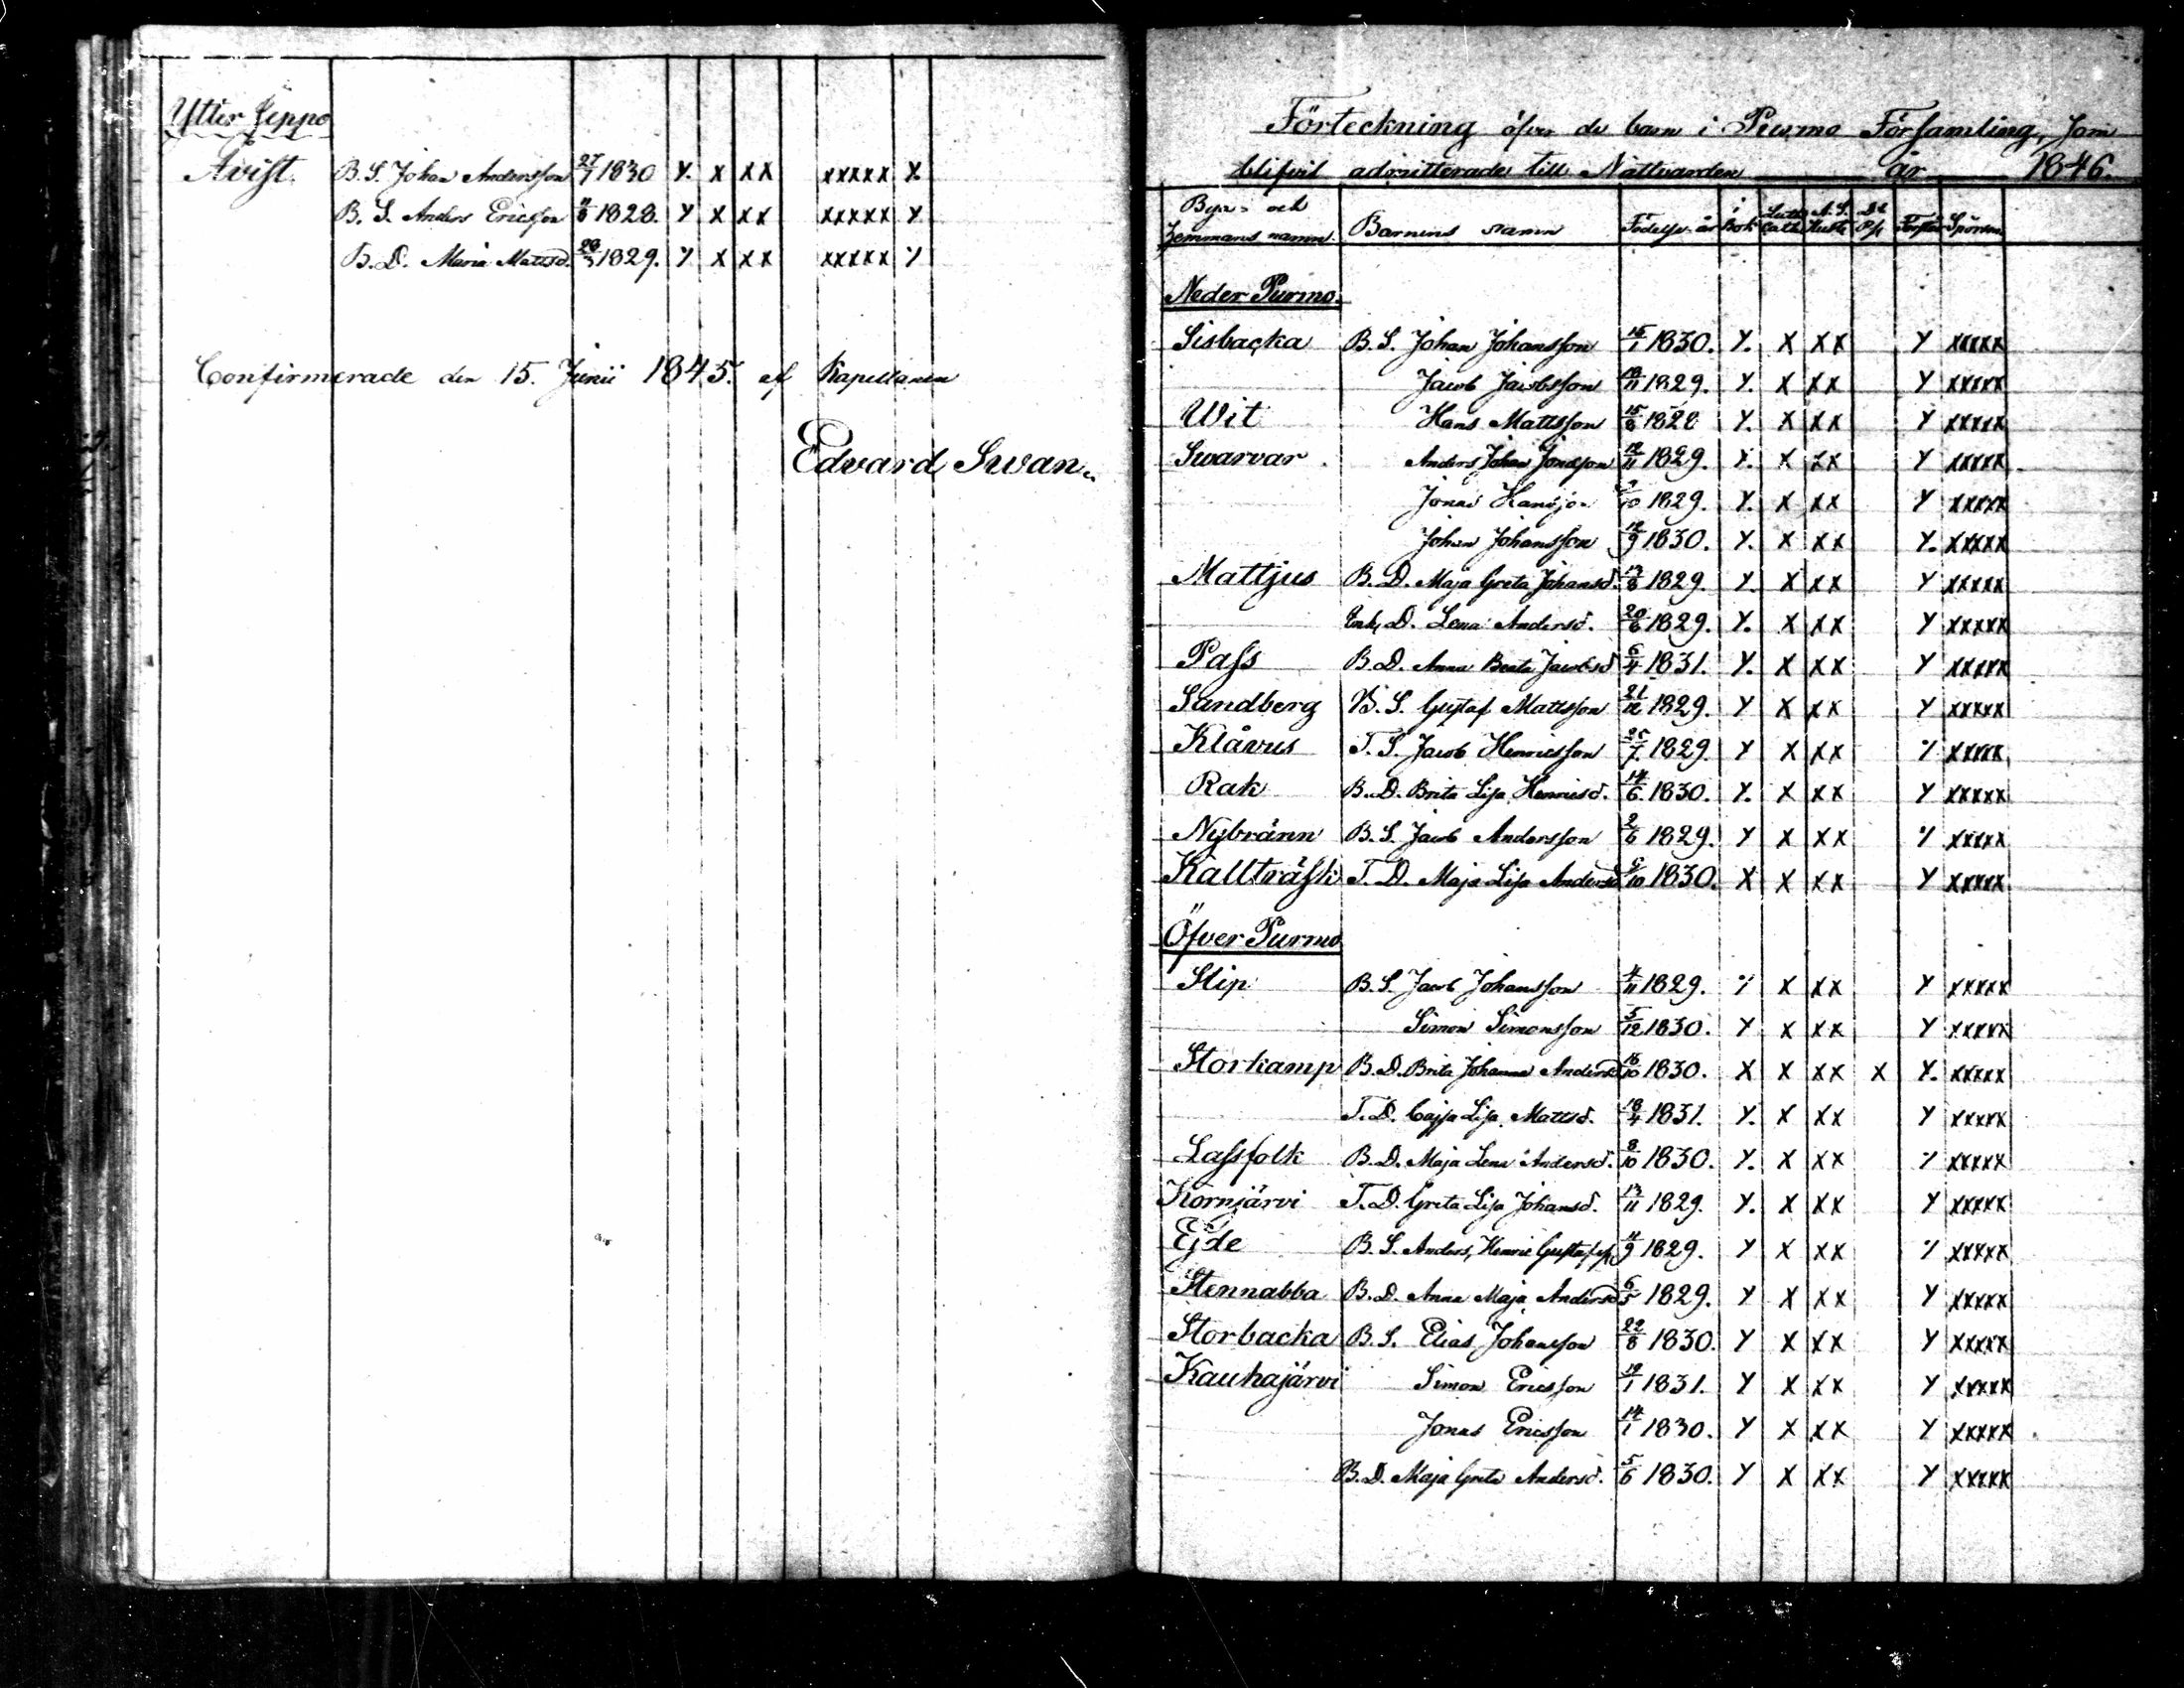 Ytter Jeppo
Avist. B. S. Johan Andersson 27/7 1830 Y. x xx xxxxx Y.
B. S. Anders Ericsson 11/8 1828. Y x xx xxxxx Y
B. D. Maria Mattsd. 1829. Y x xx xxxxx Y
Confirmerade den 15. Junii 1845. af Kapellanen
Edvard Swan.
Förteckning öfver de barn i Purmo Församling, som
blifvit admitterade till Nattvarden år 1846.
Bya- och Hemmans namn. Barnens namn Födelse-år i Bok Luth. Cath. Förstår Spörsm.
Neder Purmo.
Sisbacka B. S. Johan Johansson 15/1 1830. Y. x xx Y xxxxx
Jacob Jacobsson 1829. Y. x xx Y xxxxx
Wit Hans Mattsson 15/8 1828 Y. x xx Y xxxxx
Swarvar Anders Johan Jonsson 12/11 1829. Y. x xx Y xxxxx
Jonas Hansson 1829. Y. x xx Y xxxxx
Johan Johansson 12/9 1830. Y. x xx Y. xxxxx
Mattjus B. D. Maja Greta Johansd. 13/8 1829. Y. x xx Y xxxxx
Enk. D. Lena Andersd. 20/6 1829. Y. x xx Y xxxxx
Pass B. D. Anna Beata Jacobsd 6/4 1831. Y. x xx Y xxxxx
Sandberg B. S. Gustaf Mattsson 21/12 1829. Y x xx Y xxxxx
Klåvus T. S. Jacob Henricsson 25/7 1829. Y x xx Y xxxxx
Rak B. D. Brita Lisa Henricsd. 14/6 1830. Y. x xx Y xxxxx
Nybränn B. S. Jacob Andersson 2/6 1829. Y x xx Y xxxxx
Kallträsk T. D. Maja Lisa Andersd 1830. X x xx Y xxxxx
Öfver Purmo
Slip B. S. Jacob Johansson 4/11 1829. Y x xx Y xxxxx
Simon Simonsson 5/12 1830. Y x xx Y xxxxx
Storkamp B. D. Brita Johanna Andersd 16/10 1830. X x xx x Y. xxxxx
T. D. Cajsa Lisa Mattsd. 18/4 1831. Y. x xx Y xxxxx
Lassfolk B. D. Maja Lena Andersd. 8/10 1830. Y. x xx Y xxxxx
Kornjärvi T. D. Greta Lisa Johansd. 13/11 1829. Y. x xx Y xxxxx
Ejde B. S. Anders Henric Gustafss. 11/9 1829. Y x xx Y xxxxx
Stennabba B. D. Anna Maja Andersd 6/5 1829. Y x xx Y xxxxx
Storbacka B. S. Elias Johansson 22/8 1830. Y x xx Y xxxxx
Kauhajärvi Simon Ericsson 19/1 1831. Y x xx Y xxxxx
Jonas Ericsson 14/1 1830. Y x xx Y xxxxx
B. D. Maja Greta Andersd. 5/6 1830. Y x xx Y xxxxx